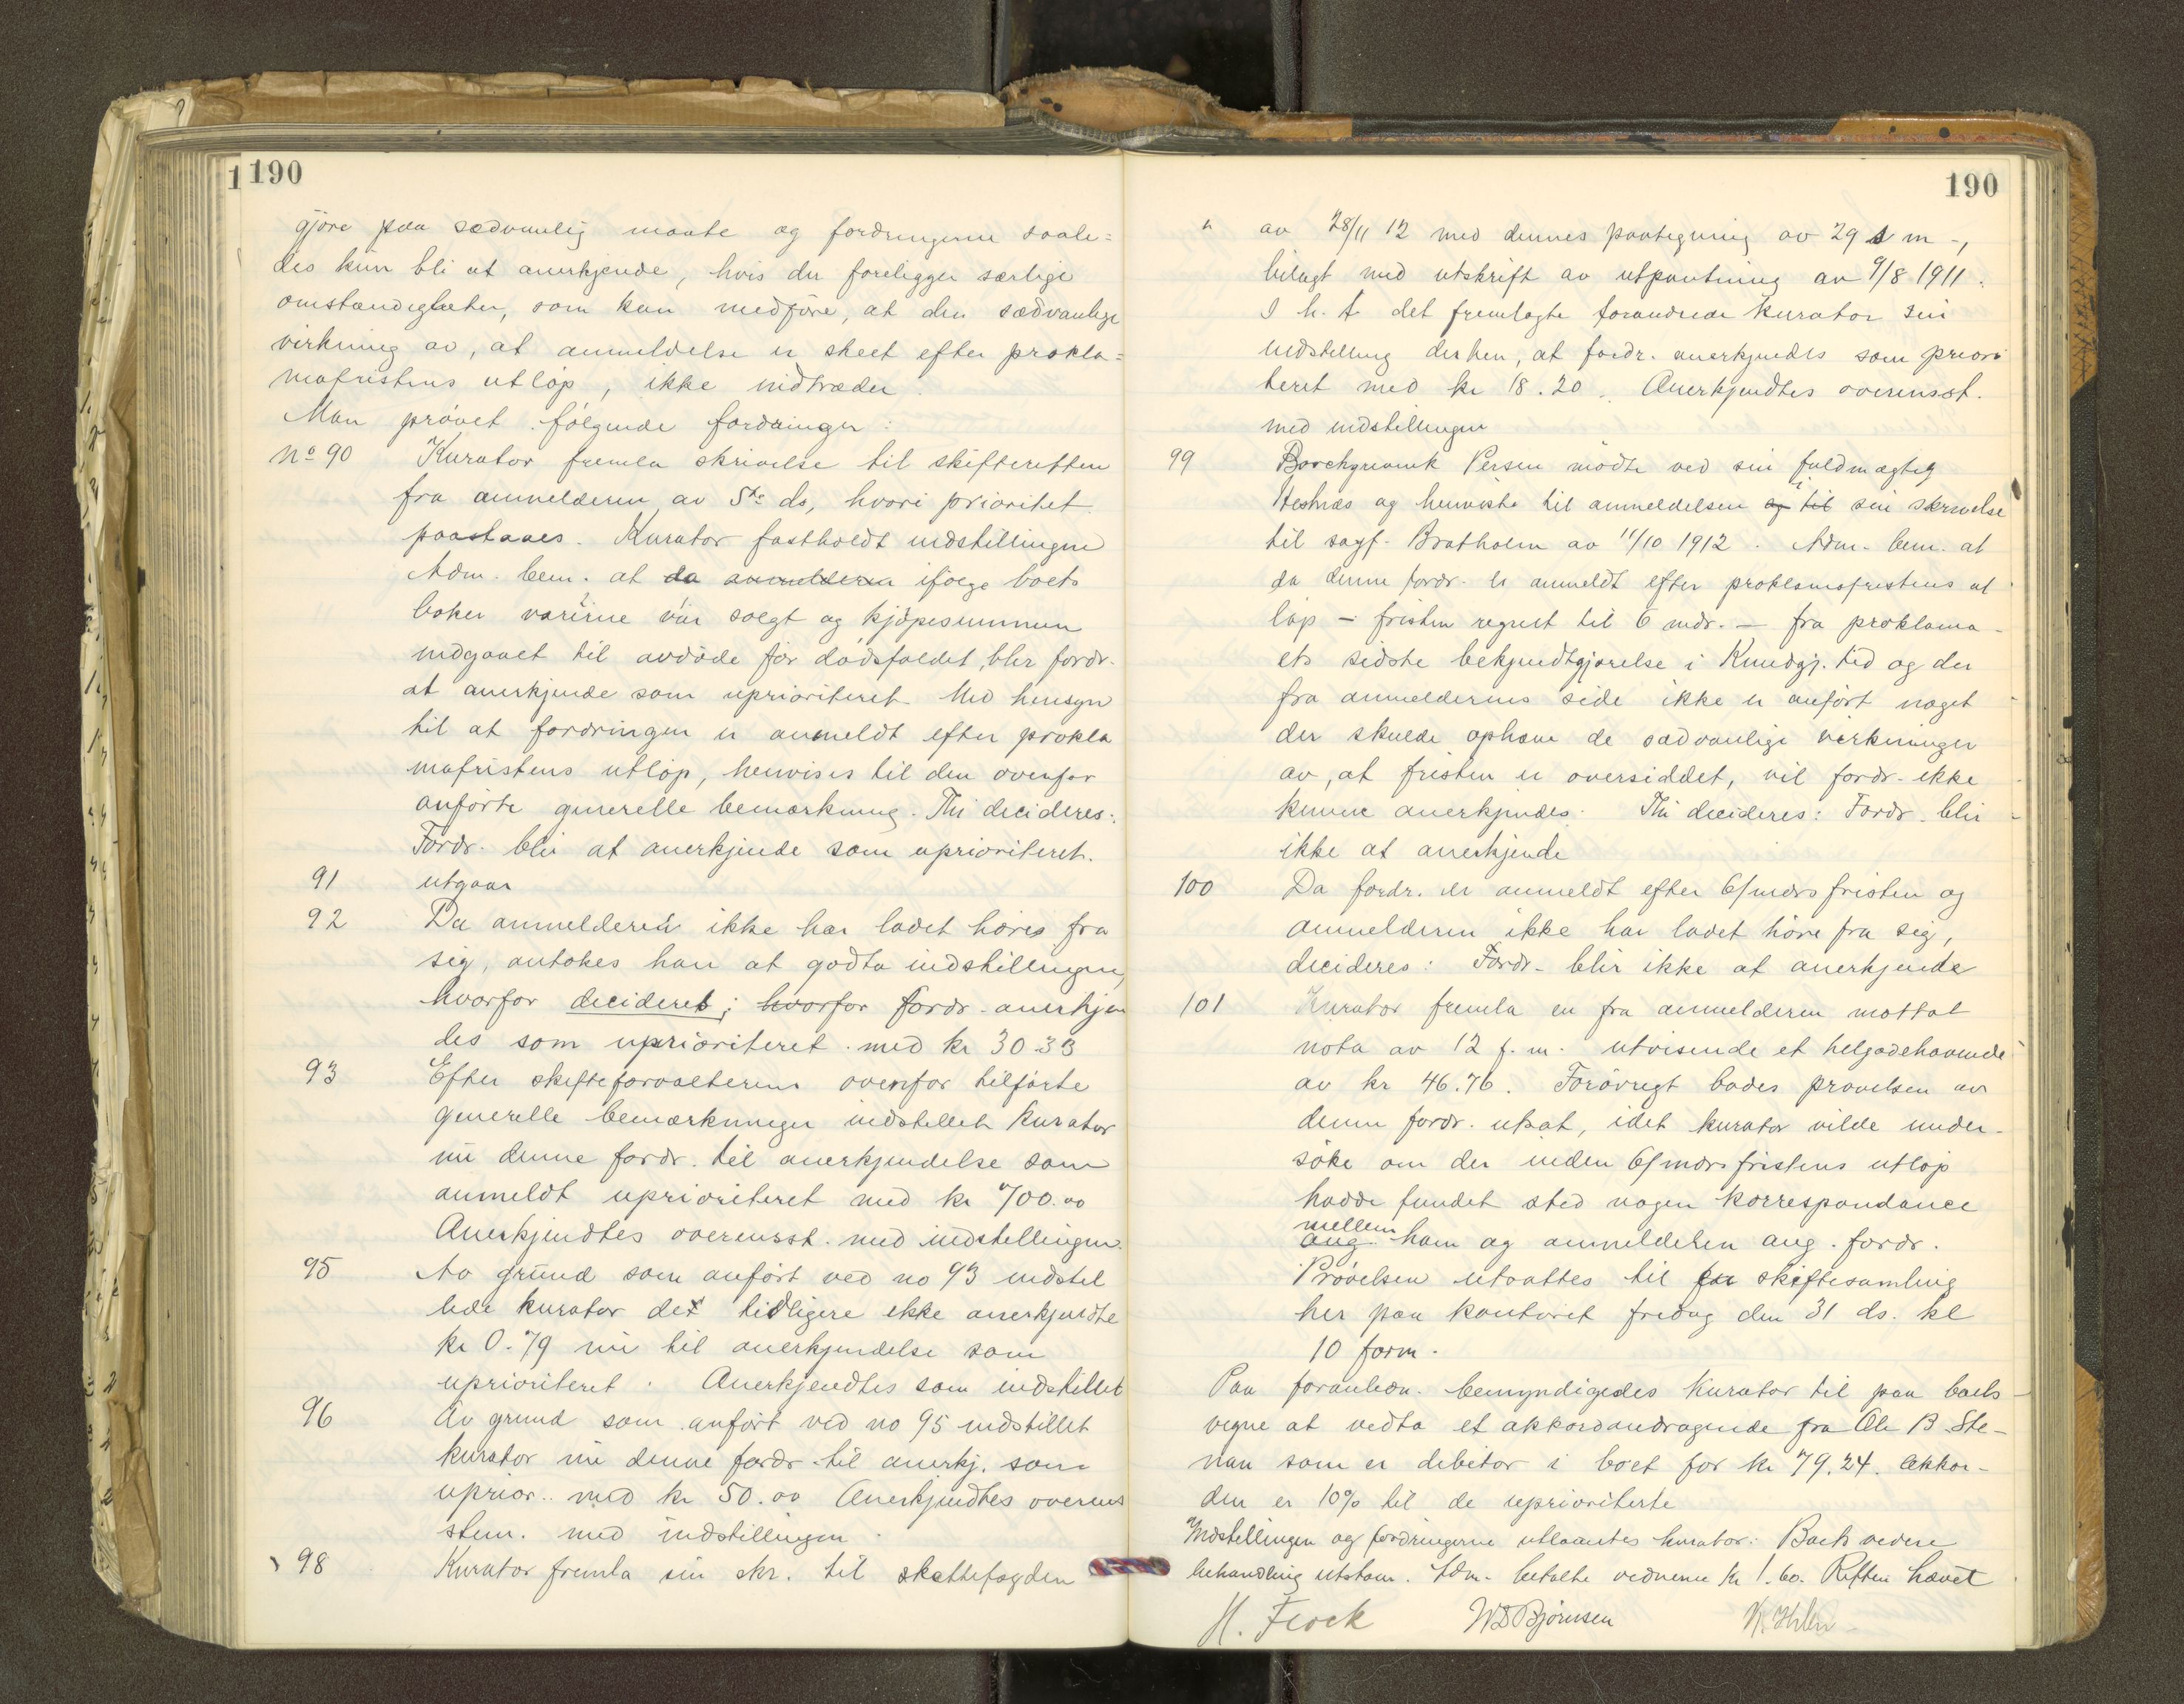 190
gjöre paa sædvanlig maate og fordringerne saale=
des kun bli at anerkjende, hvis der foreligger særlige
omstændigheter, som kan medföre, at den sædvanlige
virkning av, at anmeldelse er skeet efter prokla=
mafristens utlöp, ikke indtræder.
Man prövet følgende fordringer:
No 90 Kurator fremla skrivelse til skifteretten
fra anmelderen av 5te ds, hvori prioritet
paastaaes. Kurator fastholdt indstillingen
Adm. bem. at da anmelderen ifölge boets
böker varerne var solgt og kjöpesummen
indgaaet til avdöde för dödsfaldet, blir fordr.
at anerkjende som uprioritert. Med hensyn
til at fordringen er anmeldt efter prokla
mafristens utlöp, henvises til den ovenfor
anförte generelle bemærkning. Thi decideres:
Fordr. blir at anerkjende som uprioriteret.
91 utgaar
92 Da anmelderen ikke har ladet höre fra
sig, antakes han at godta indstillingen,
hvorfor decideret; hvorfor fordr. anerkjen
des som uprioriteret med kr 30.33
93 Efter skifteforvalterens ovenfor tilförte
generelle bemærkninger indstillet kurator
nu denne fordr. til anerkjendelse som
anmeldt uprioriteret med kr 700.00
Anerkjendtes overensst. med indstillingen.
95 Av grund som anfört ved no 93 indstil
lede kurator det tidligere ikke anerkjendte
kr 0.79 nu til anerkjendelse som
uprioriteret. Anerkjendtes som indstillet
96 Av grund som anfört ved no 95 indstillet
kurator nu denne fordr. til anerkj. som
uprior. med kr 50.00 Anerkjendtes overens
stem. med indstillingen.
98 Kurator fremla sin skr. til skattefogden
190
av 28/11 12 med dennes paategning av 29 s m -,
bilagt med utskrift av utpantning av 9/8 1911.
I h. t det fremlagte forandrede kurator sin
indstilling derhen, at fordr. anerkjendes som priori
teret med kr 18.20. Anerkjendtes overensst.
med indstillingen
99 Borchgrevink Persen mödte ved sin fuldmægtig
Hestnæs og henviste til anmeldelsen og til i sin skrivelse
til sagf. Bratholm av 11/10 1912. Adm. bem. at
da denne fordr. er anmeldt efter proklamafristens ut
löp – fristen regnet til 6 mdr. – fra proklama-
ets sidste bekjendtgjörelse i Kundgj. tid og der
fra anmelderens side ikke er anfört noget
der skulde ophæve de sædvanlige virkninger
av, at fristen er oversiddet, vil fordr. ikke
kunne anerkjendes. Thi decideres: Fordr. blir
ikke at anerkjende
100 Da fordr. er anmeldt efter 6/mdrs fristen og
anmelderen ikke har ladet höre fra sig,
decideres: Fordr. blir ikke at anerkjende
101 Kurator fremla en fra anmelderen mottat
nota av 12 f. m. utvisende et tilgodehavende
av kr 46.76. Forövrigt bades prövelsen av
denne fordr. utsat, idet kurator vilde under-
söke om der inden 6/mdrs fristens utlöp
hadde fundet sted nogen korrespondance
mellem
ang. ham og anmelderen ang. fordr.
Prövelsen utsattes til skiftesamling
her paa kontoret fredag den 31 ds. kl
10 form.
Paa foranledn. bemyndigedes kurator til paa boets
vegne at vedta et akkordandragende fra Ole B. Ste-
nan som er debitor i boet for kr 79.24. Akkor-
den er 10% til de uprioriterte
Indstillingen og fordringerne utlaantes kurator. Boets videre
behandling utstaar. Adm. betalte vidnerne kr 1.60. Retten hævet
H. Flock WD Bjørnsen K. Ihlen